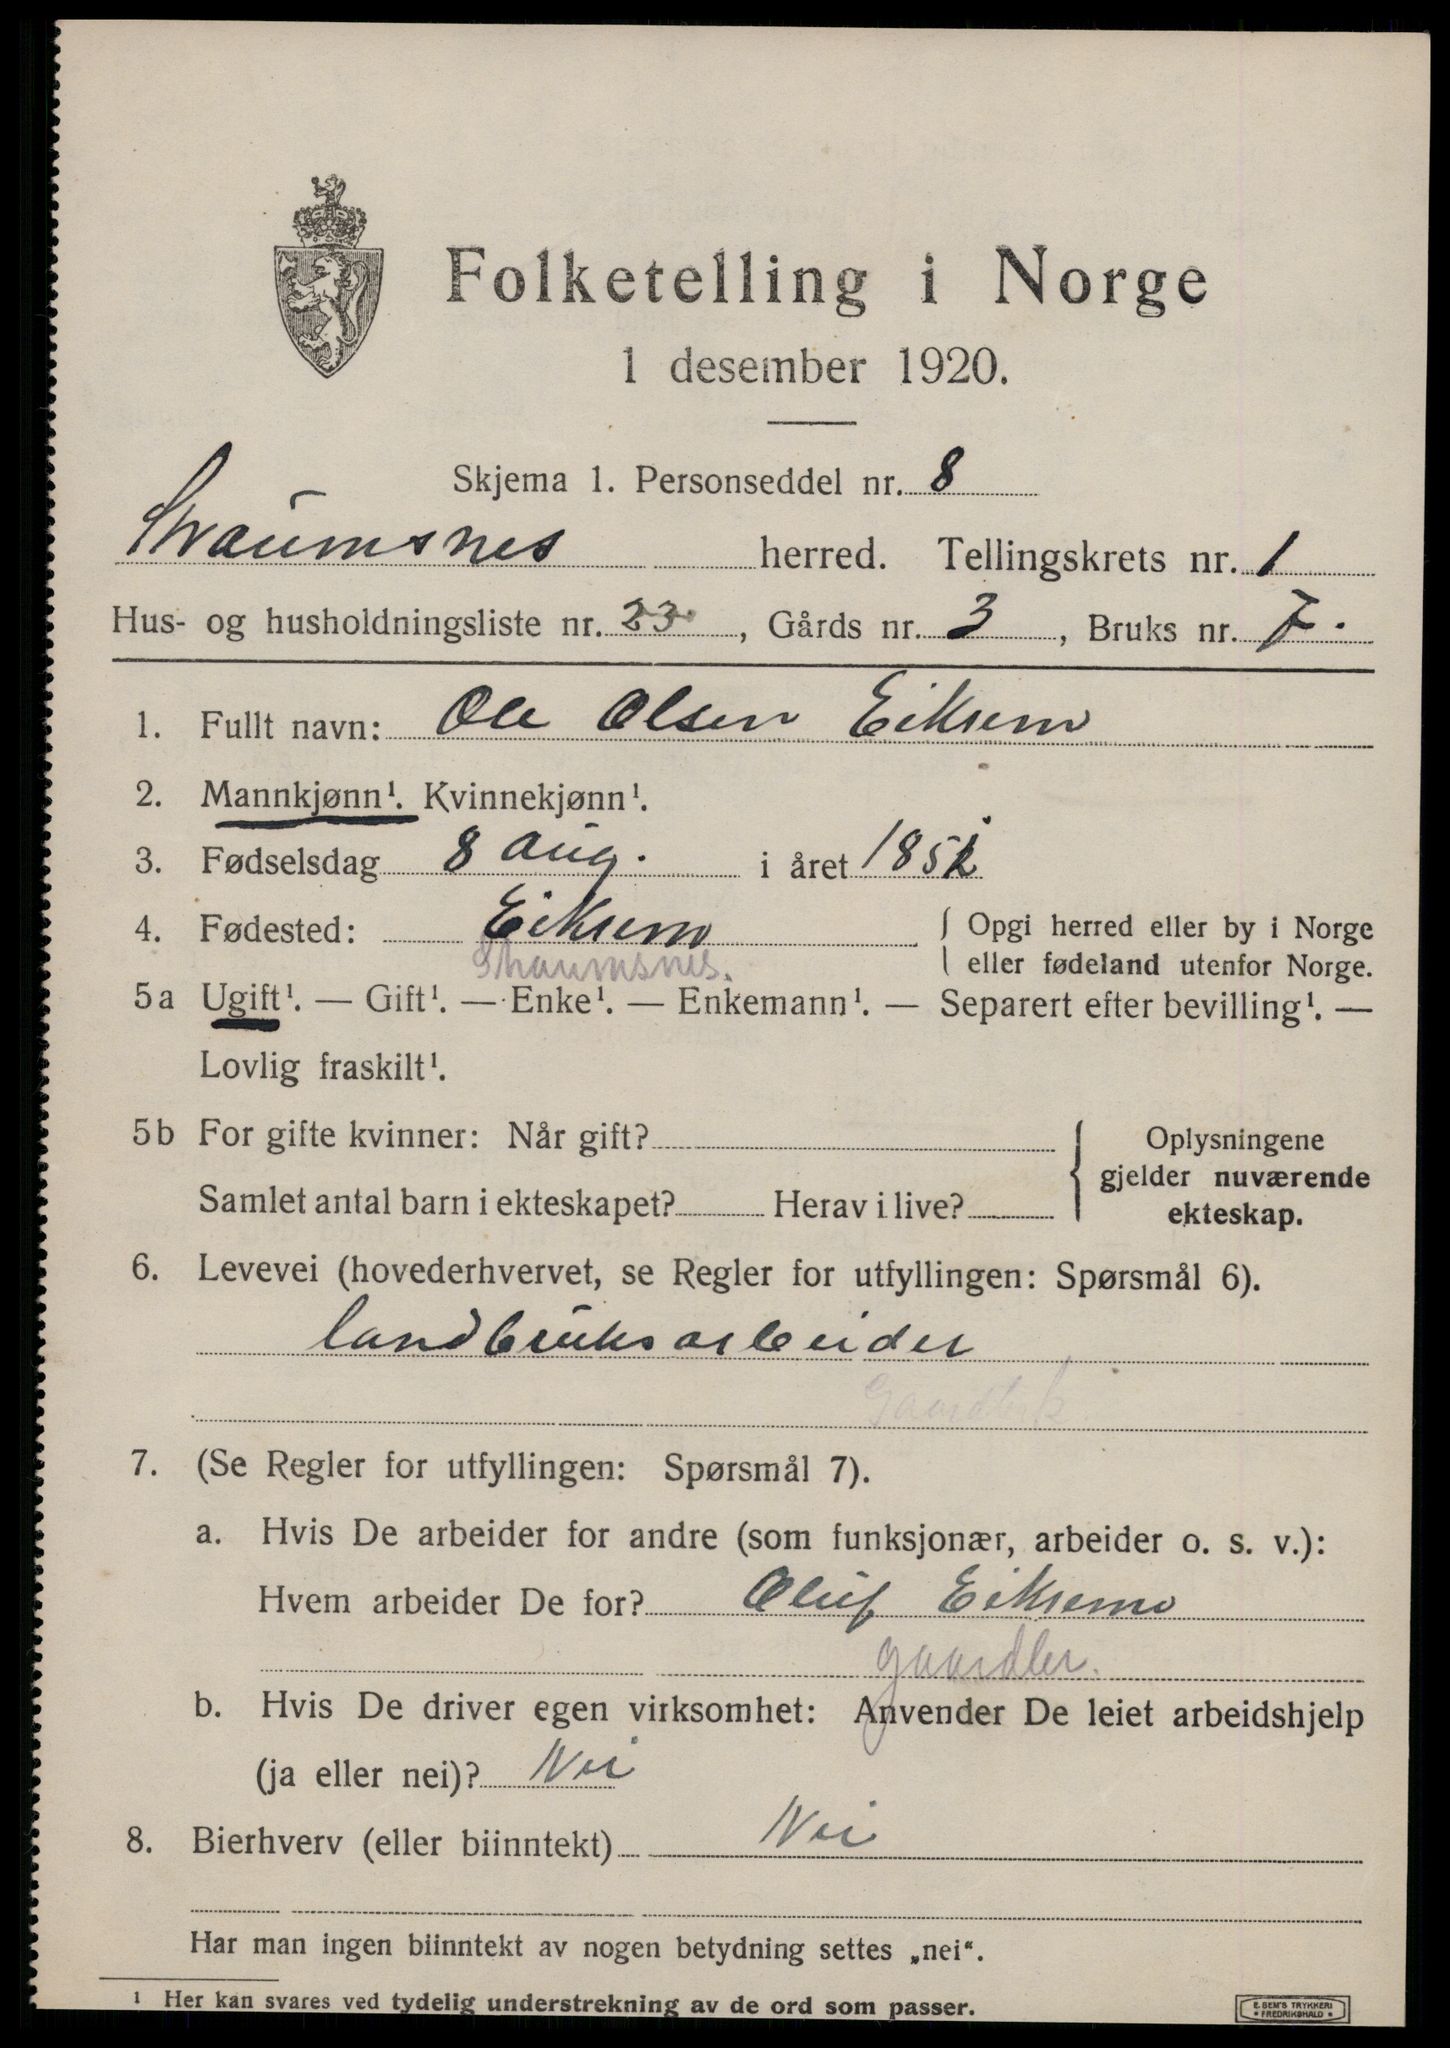 Folketelling i Norge
1 desember 1920.
Skjema 1. Personseddel nr. 8
Straumsnes herred. Tellingskrets nr. 1
Hus- og husholdningsliste nr. 23, Gårds nr. 3, Bruks nr. 7.
1. Fullt navn: Ole Olsen Eiksemo
2. Mannkjønn¹. Kvinnekjønn¹.
3. Fødselsdag 8 aug. i året
4. Fødested: Eiksemo { Opgi herred eller by i Norge
Straumsnes. eller fødeland utenfor Norge.
5a Ugift¹. — Gift¹. — Enke¹. — Enkemann¹. — Separert efter bevilling¹. —
Lovlig fraskilt¹.
5b For gifte kvinner: Når gift? } Oplysningene
gjelder nuværende
Samlet antal barn i ekteskapet? Herav i live? ekteskap.
6. Levevei (hovederhvervet, se Regler for utfyllingen: Spørsmål 6).
landbruksarbeider
7. (Se Regler for utfyllingen: Spørsmål 7).
a. Hvis De arbeider for andre (som funksjonær, arbeider o. s. v.):
Hvem arbeider De for? Oluf Eiksemo
b. Hvis De driver egen virksomhet: Anvender De leiet arbeidshjelp
(ja eller nei)? Nei
8. Bierhverv (eller biinntekt) Nei
Har man ingen biinntekt av nogen betydning settes „nei“.
¹ Her kan svares ved tydelig understrekning av de ord som passer.
E. SEM'S TRYKKERI
* FREDRIKSHALD *